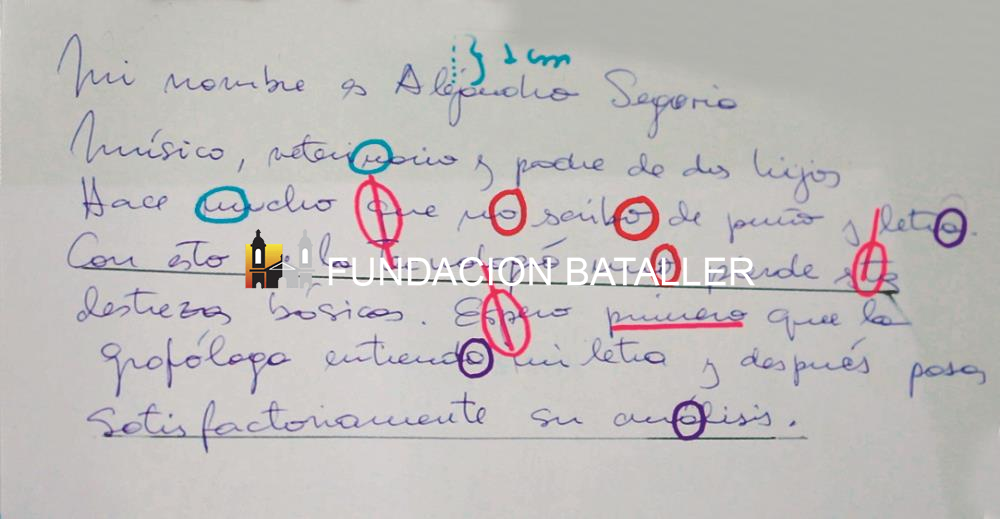 1 cm
Mi nombre es Alejandro Segovia
Músico, veterinario y padre de dos hijos
Hace mucho que no escribo de puño y letra.
Con esto la uno pierde sus
FUNDACION BATALLER
destrezas básicas. Espero primero que la
grafóloga entienda mi letra y después pasar
satisfactoriamente su análisis.